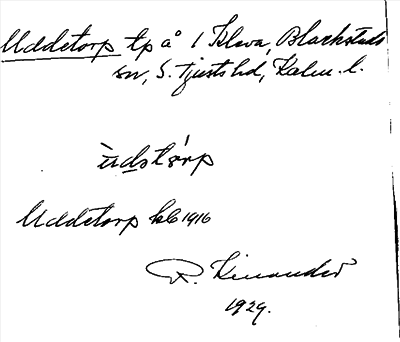 Uddetorp tp å 1 Kleva, Blackstads
sn, S. Tjusts hd, Kalm. l.
ùdstórp
Uddetorp kb 1916
R. Kinander
1929.